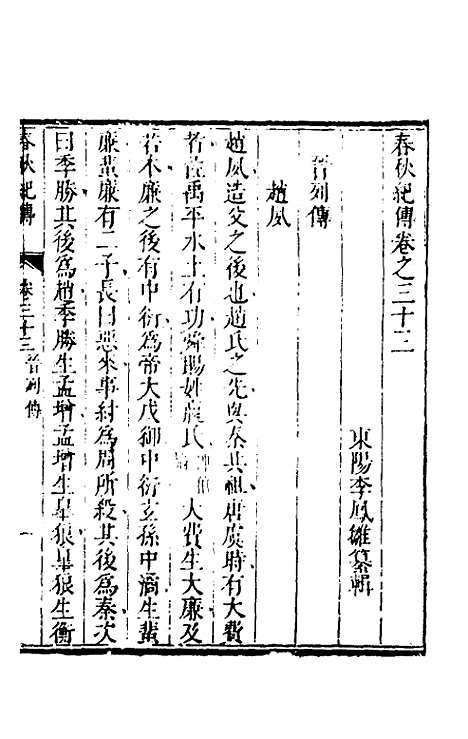 春秋紀傳卷之三十三
東陽李鳳雛纂輯
晉列傳
趙夙
趙夙造父之後也趙氏之先與秦共祖唐虞時有大費
者佐禹平水土有功舜賜姓嬴氏大費生大廉及
若木廉之後有中衍為帝大戊御中衍玄孫中潏生蜚
廉蜚廉有二子長曰惡來事紂為周所殺其後為秦次
曰季勝其後為趙季勝生孟增孟增生皋狼皋狼生衡
春秋紀傳 卷三十三 晉列傳 一